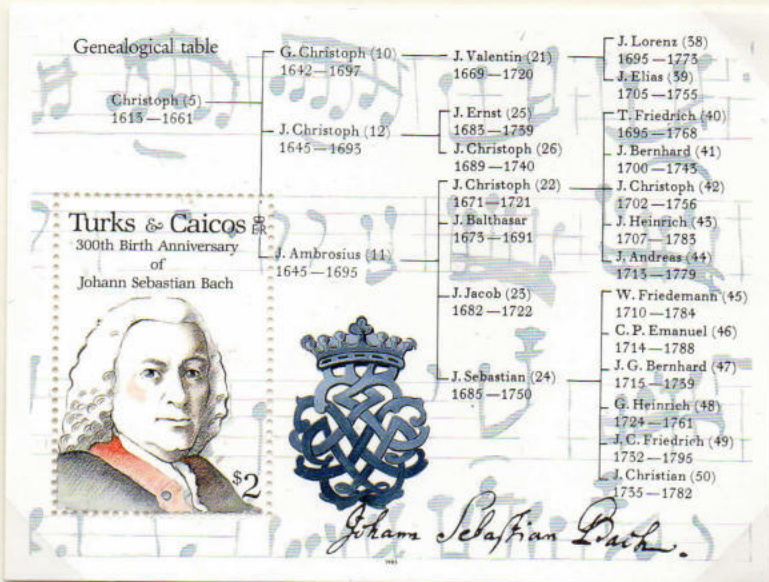 Genealogical table
Christoph (5)
1613—1661
G. Christoph (10)
1642—1697
J. Christoph (12)
1645—1693
J. Ambrosius (11)
1645—1695
J. Valentin (21)
1669—1720
J. Ernst (25)
1683—1739
J. Christoph (26)
1689—1740
J. Christoph (22)
1671—1721
J. Balthasar
1673—1691
J. Jacob (23)
1682—1722
J. Sebastian (24)
1685—1750
J. Lorenz (38)
1695—1773
J. Elias (39)
1705—1755
T. Friedrich (40)
1695—1768
J. Bernhard (41)
1700—1743
J. Christoph (42)
1702—1756
J. Heinrich (43)
1707—1783
J. Andreas (44)
1713—1779
W. Friedemann (45)
1710—1784
C. P. Emanuel (46)
1714—1788
J. G. Bernhard (47)
1715—1739
G. Heinrich (48)
1724—1761
J. C. Friedrich (49)
1732—1795
J. Christian (50)
1735—1782
Turks & Caicos
ER
300th Birth Anniversary
of
Johann Sebastian Bach
$2
Johann Sebastian Bach.
1985